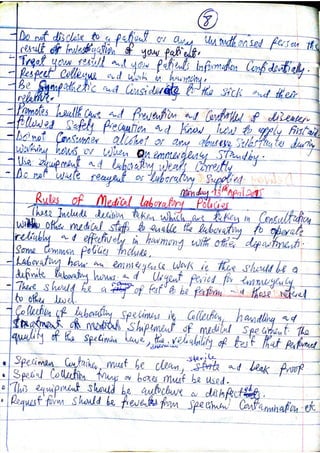 8
- Do not disclose to a patient or any Unauthorised Person the
result of Investigation of your patient.
- Treat your result and your patients Information Confidentially.
- Respect Collegue and work in harmony.
- Be Sympathetic and Considerate to the sick and their
relative.
- Promotes health Care and Prevention and Controlled of diseases.
- Allowed Safety Precaution and know how to apply First aid
- Do not Consumer alcohol or any abuse Substitute during
working hours or when On emmergency Standby.
- Use equipment and laboratory wear Correctly.
- Do not waste reagent or laboratory Supplied
Monday 13th April 2015
Rules of Medical laboratory Policies
These Include decision taken which are taken in Consultation
with other medical staff to enable the laboratory to operate
reliably and effectively in harmony with other department.
Some Common policies Include.
- Laboratory hour an emmergence work ie there should be a
definite laboratory hours and Urgent Period for emmergency
- There should be a of test to be Perform and those refered
to other level.
- Collection of laboratory specimens ie Collection, handling and
Shipement of medical Speciment. The
quality of the specimen have, the reliability of test that performed
sterile
• Specimen Container must be clean, and leak proof
• Special Collection or boxes must be used.
• This equipment should be autoclave or
• Request form should be from Specimen Contamination etc